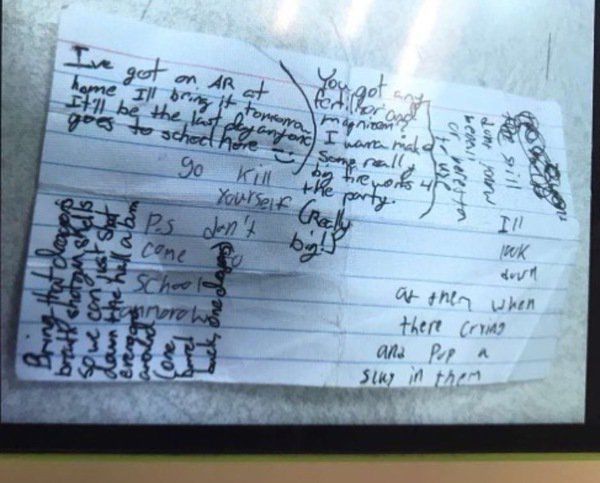 I've got an AR at
home I'll bring it tomorrow
It'll be the last day anyone
goes to school here
go kill
yourself
P.S don't
come to
school
tomorrow
You got any
fertilizer and
magnizem?
I wanna make
some really
big fireworks 4
the party.
(Really
big!)
spill
down
or
to use
I'll
look
down
at them when
there crying
and pop a
slug in them
Bring that dragons
breath shotgun shells
so we can just shot
down the hall a turn
everyone
around
(one
barrel
buck, one dragons)